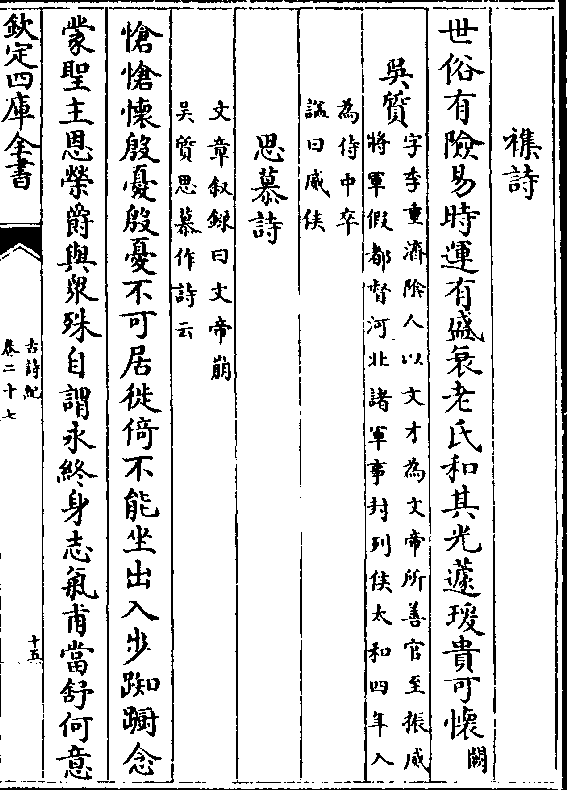 襍詩
世俗有險易時運有盛衰老氏和其光蘧瑗貴可懷闕
吳質
字季重濟陰人以文才為文帝所善官至振威
將軍假都督河北諸軍事封列侯太和四年入
為侍中卒
諡曰威侯
思慕詩
文章叙録曰文帝崩
吳質思慕作詩云
愴愴懷殷憂殷憂不可居徙倚不能坐出入步踟躕念
蒙聖主恩榮爵與衆殊自謂永終身志氣甫當舒何意
欽定四庫全書
古詩紀
卷二十七
十五